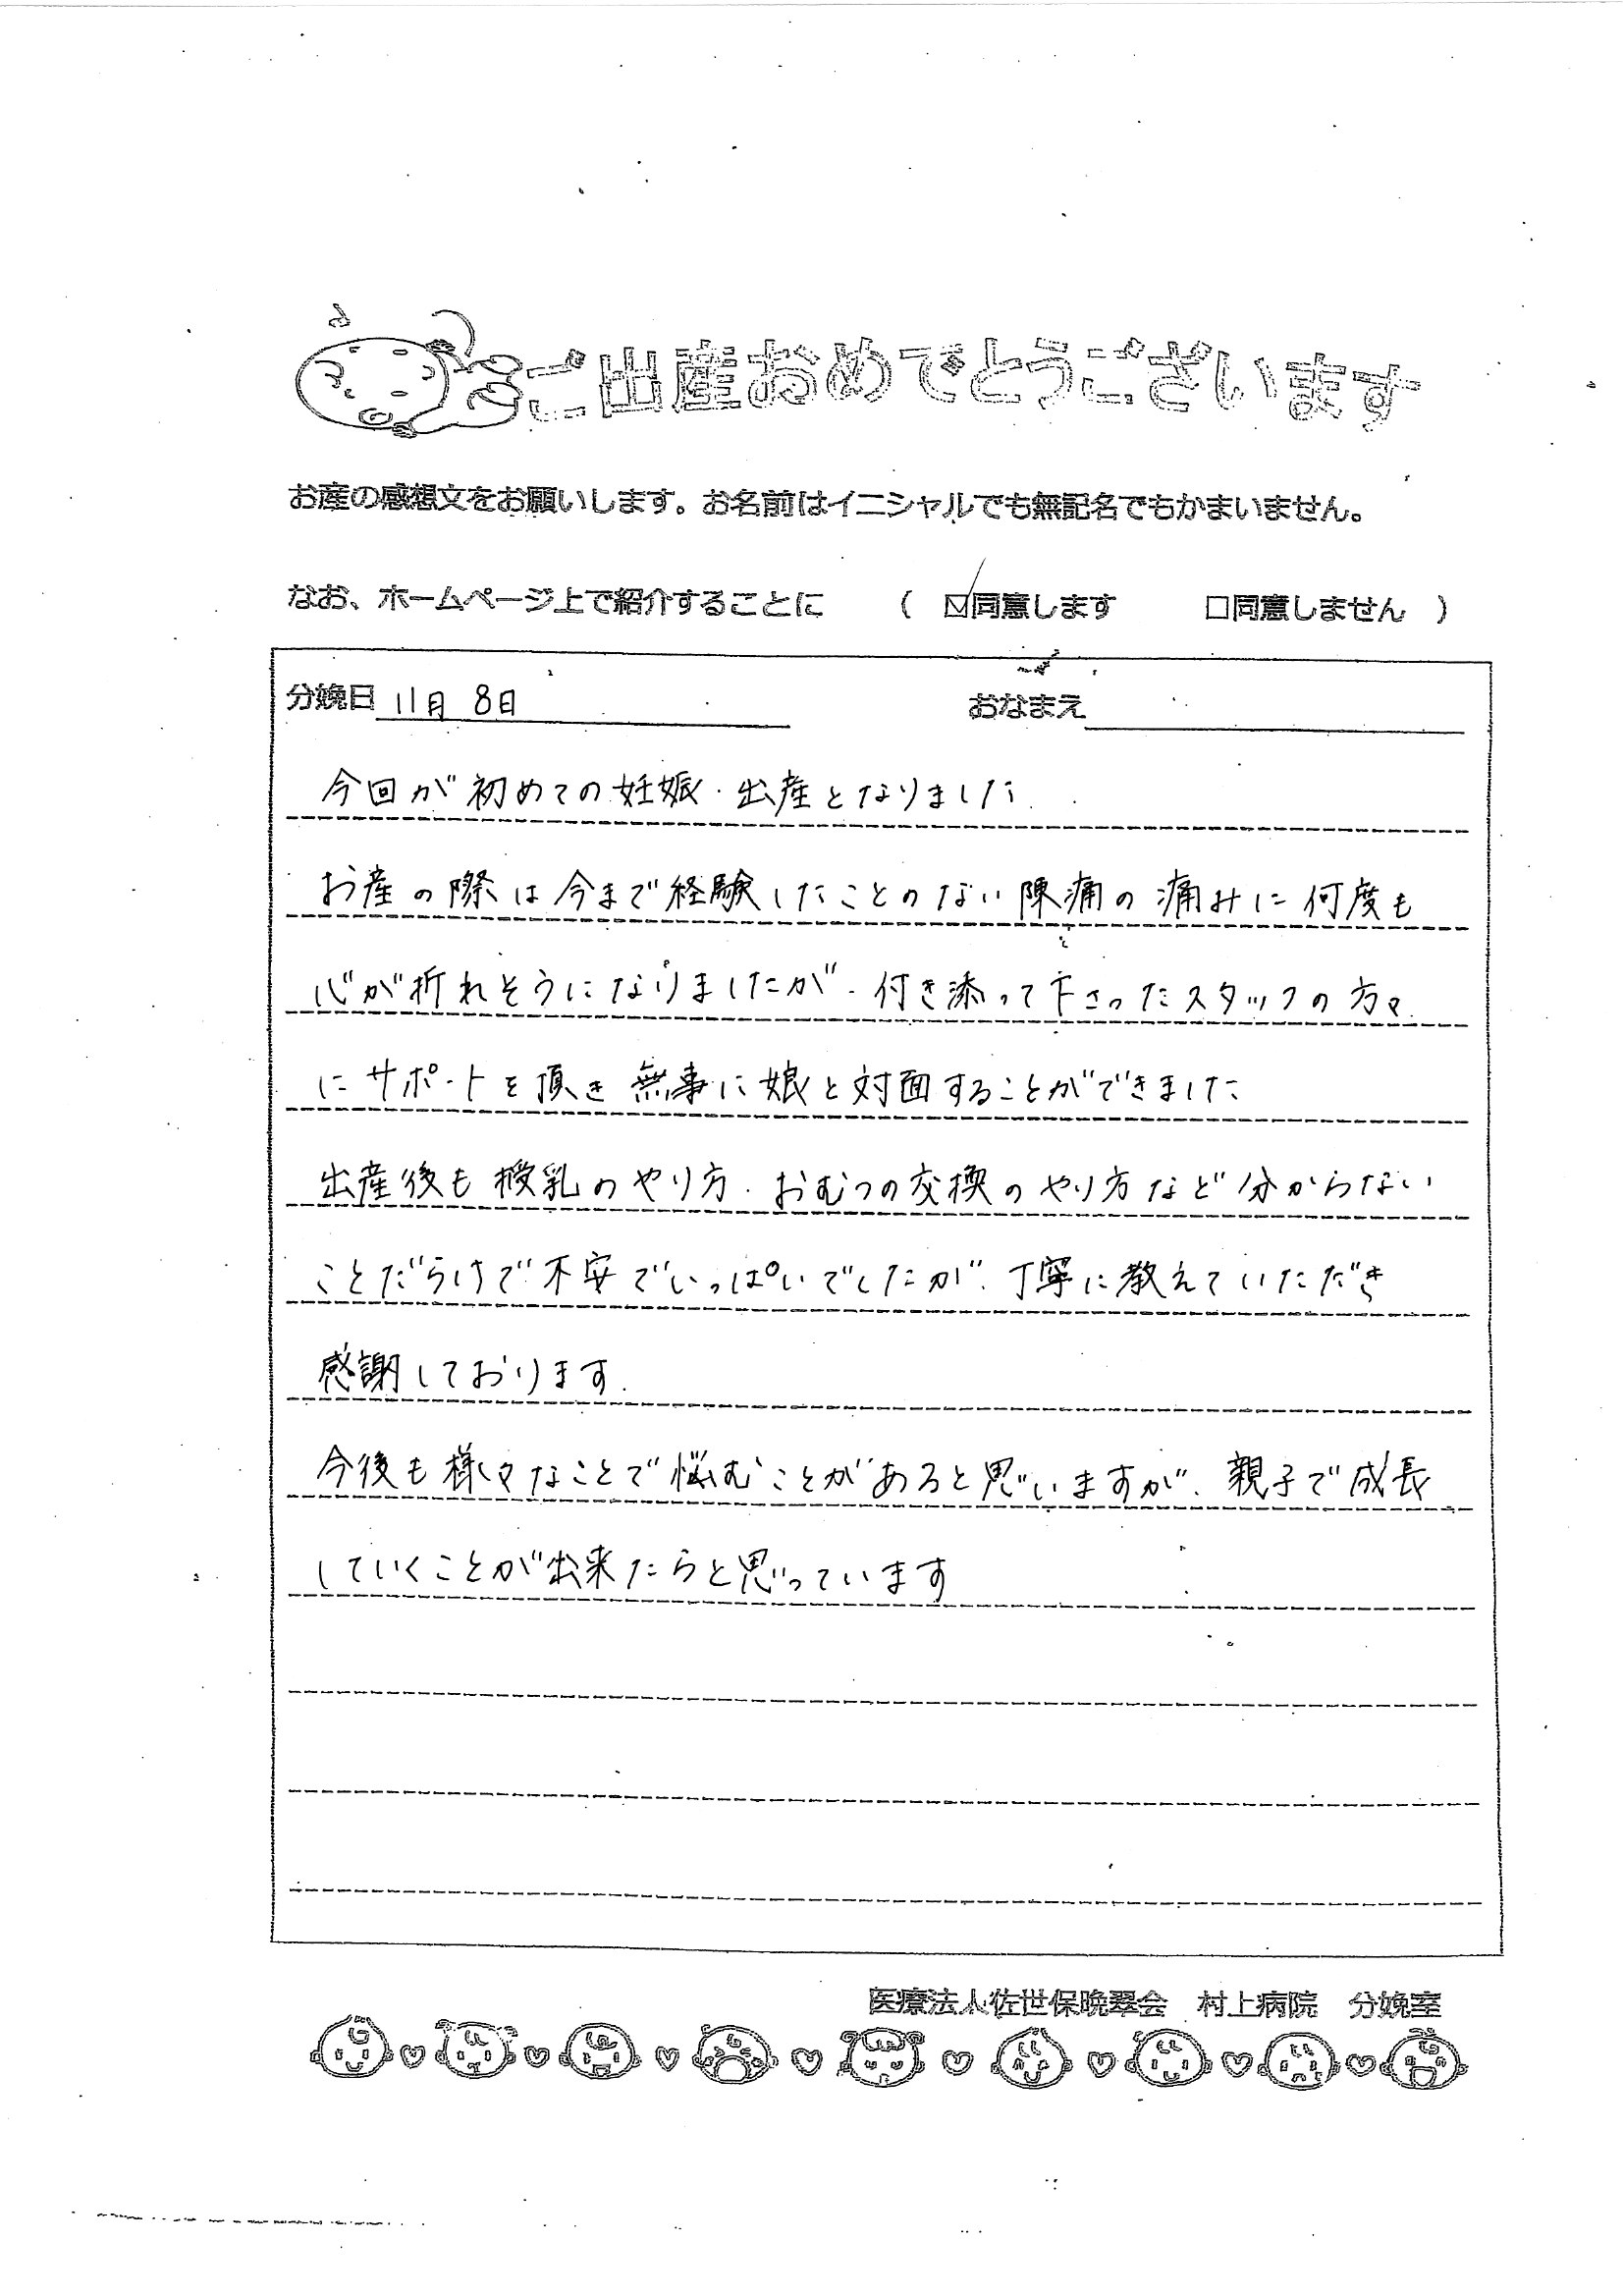 ご出産おめでとうございます
お産の感想文をお願いします。お名前はイニシャルでも無記名でもかまいません。
なお、ホームページ上で紹介することに （ ☑同意します □同意しません ）
分娩日 11月 8日 おなまえ
今回が初めての妊娠・出産となりました.
お産の際は今まで経験したことのない陣痛の痛みに何度も
心が折れそうになりましたが、付き添って下さったスタッフの方々
にサポートを頂き無事に娘と対面することができました
出産後も授乳のやり方、おむつの交換のやり方など分からない
ことだらけで不安でいっぱいでしたが、丁寧に教えていただき
感謝しております.
今後も様々なことで悩むことがあると思いますが、親子で成長
していくことが出来たらと思っています
医療法人佐世保晩翠会 村上病院 分娩室